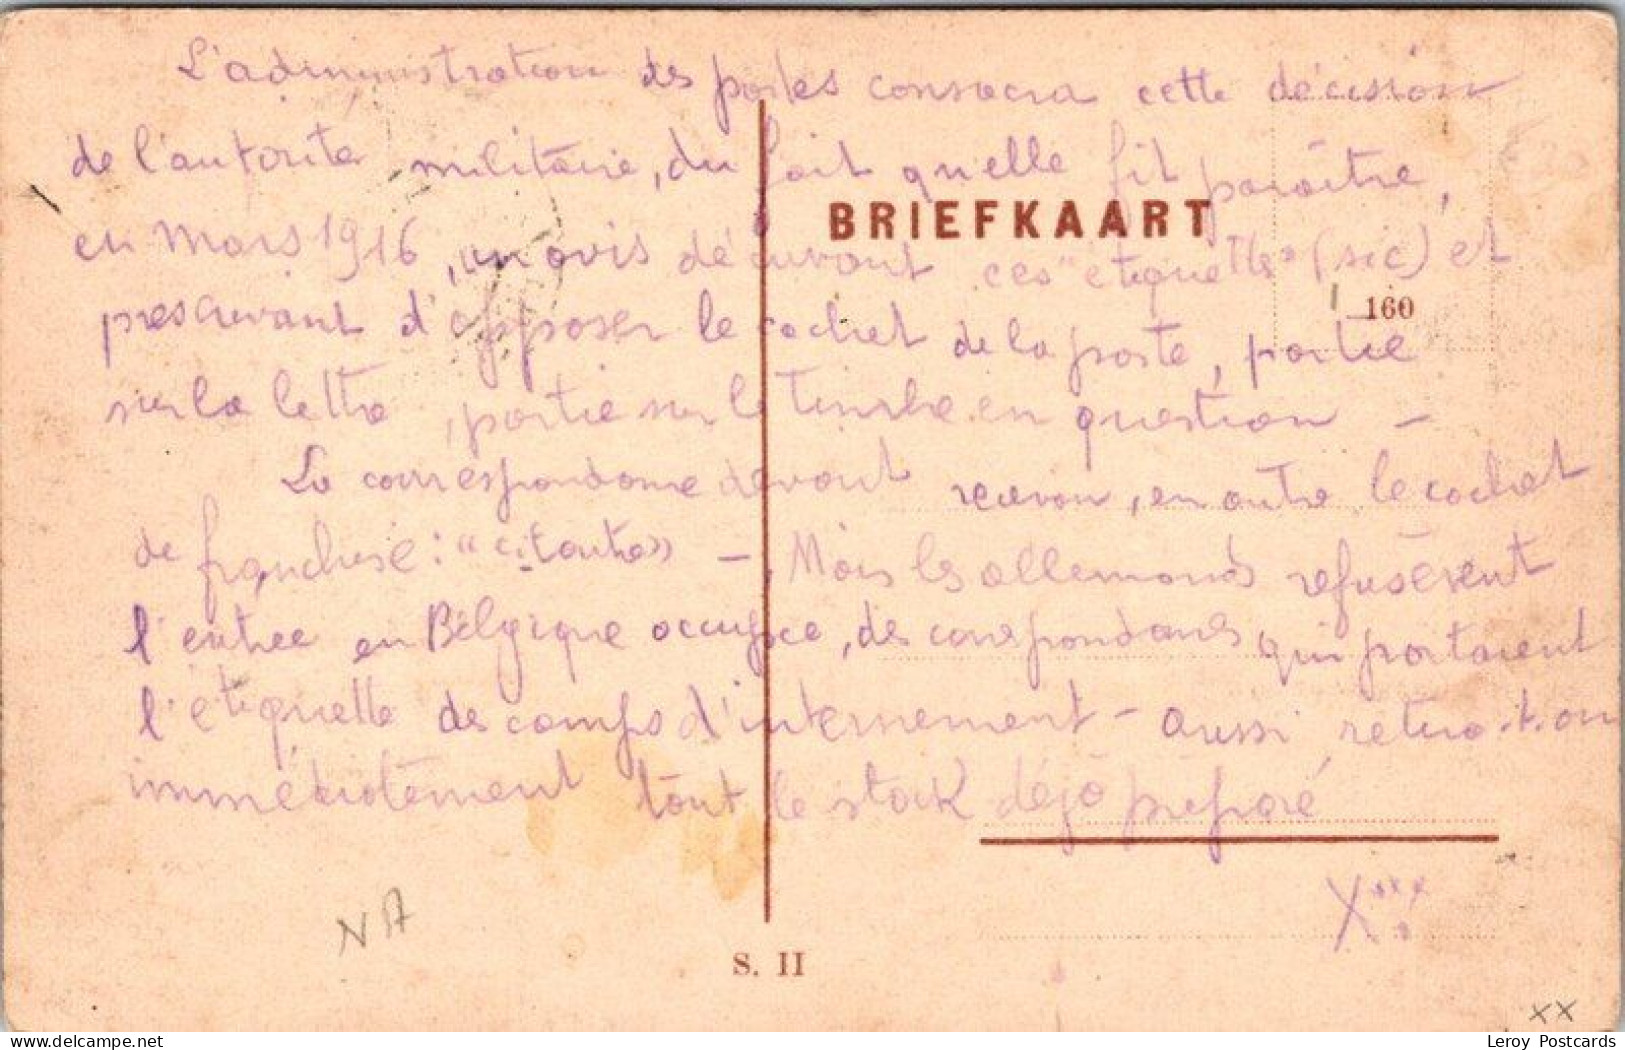 L'administration des postes consacra cette décision
de l'autorité militaire, du fait qu'elle fit paraître,
en Mars 1916, un avis décrivant ces "etiquettes" (sic) et
prescrivant d'apposer le cachet de la poste, partie
sur la lettre, partie sur le timbre en question –
La correspondance devant recevoir, en outre le cachet
de franchise: "
l'entrée en Belgique occupée, des correspondances qui portaient
l'etiquette des camps d'internement – aussi retira-t-on
immédiatement tout le stock déjà préparé
BRIEFKAART
160
– Mais les allemands refusèrent
X
NA
S. II
xx
Leroy Postcards